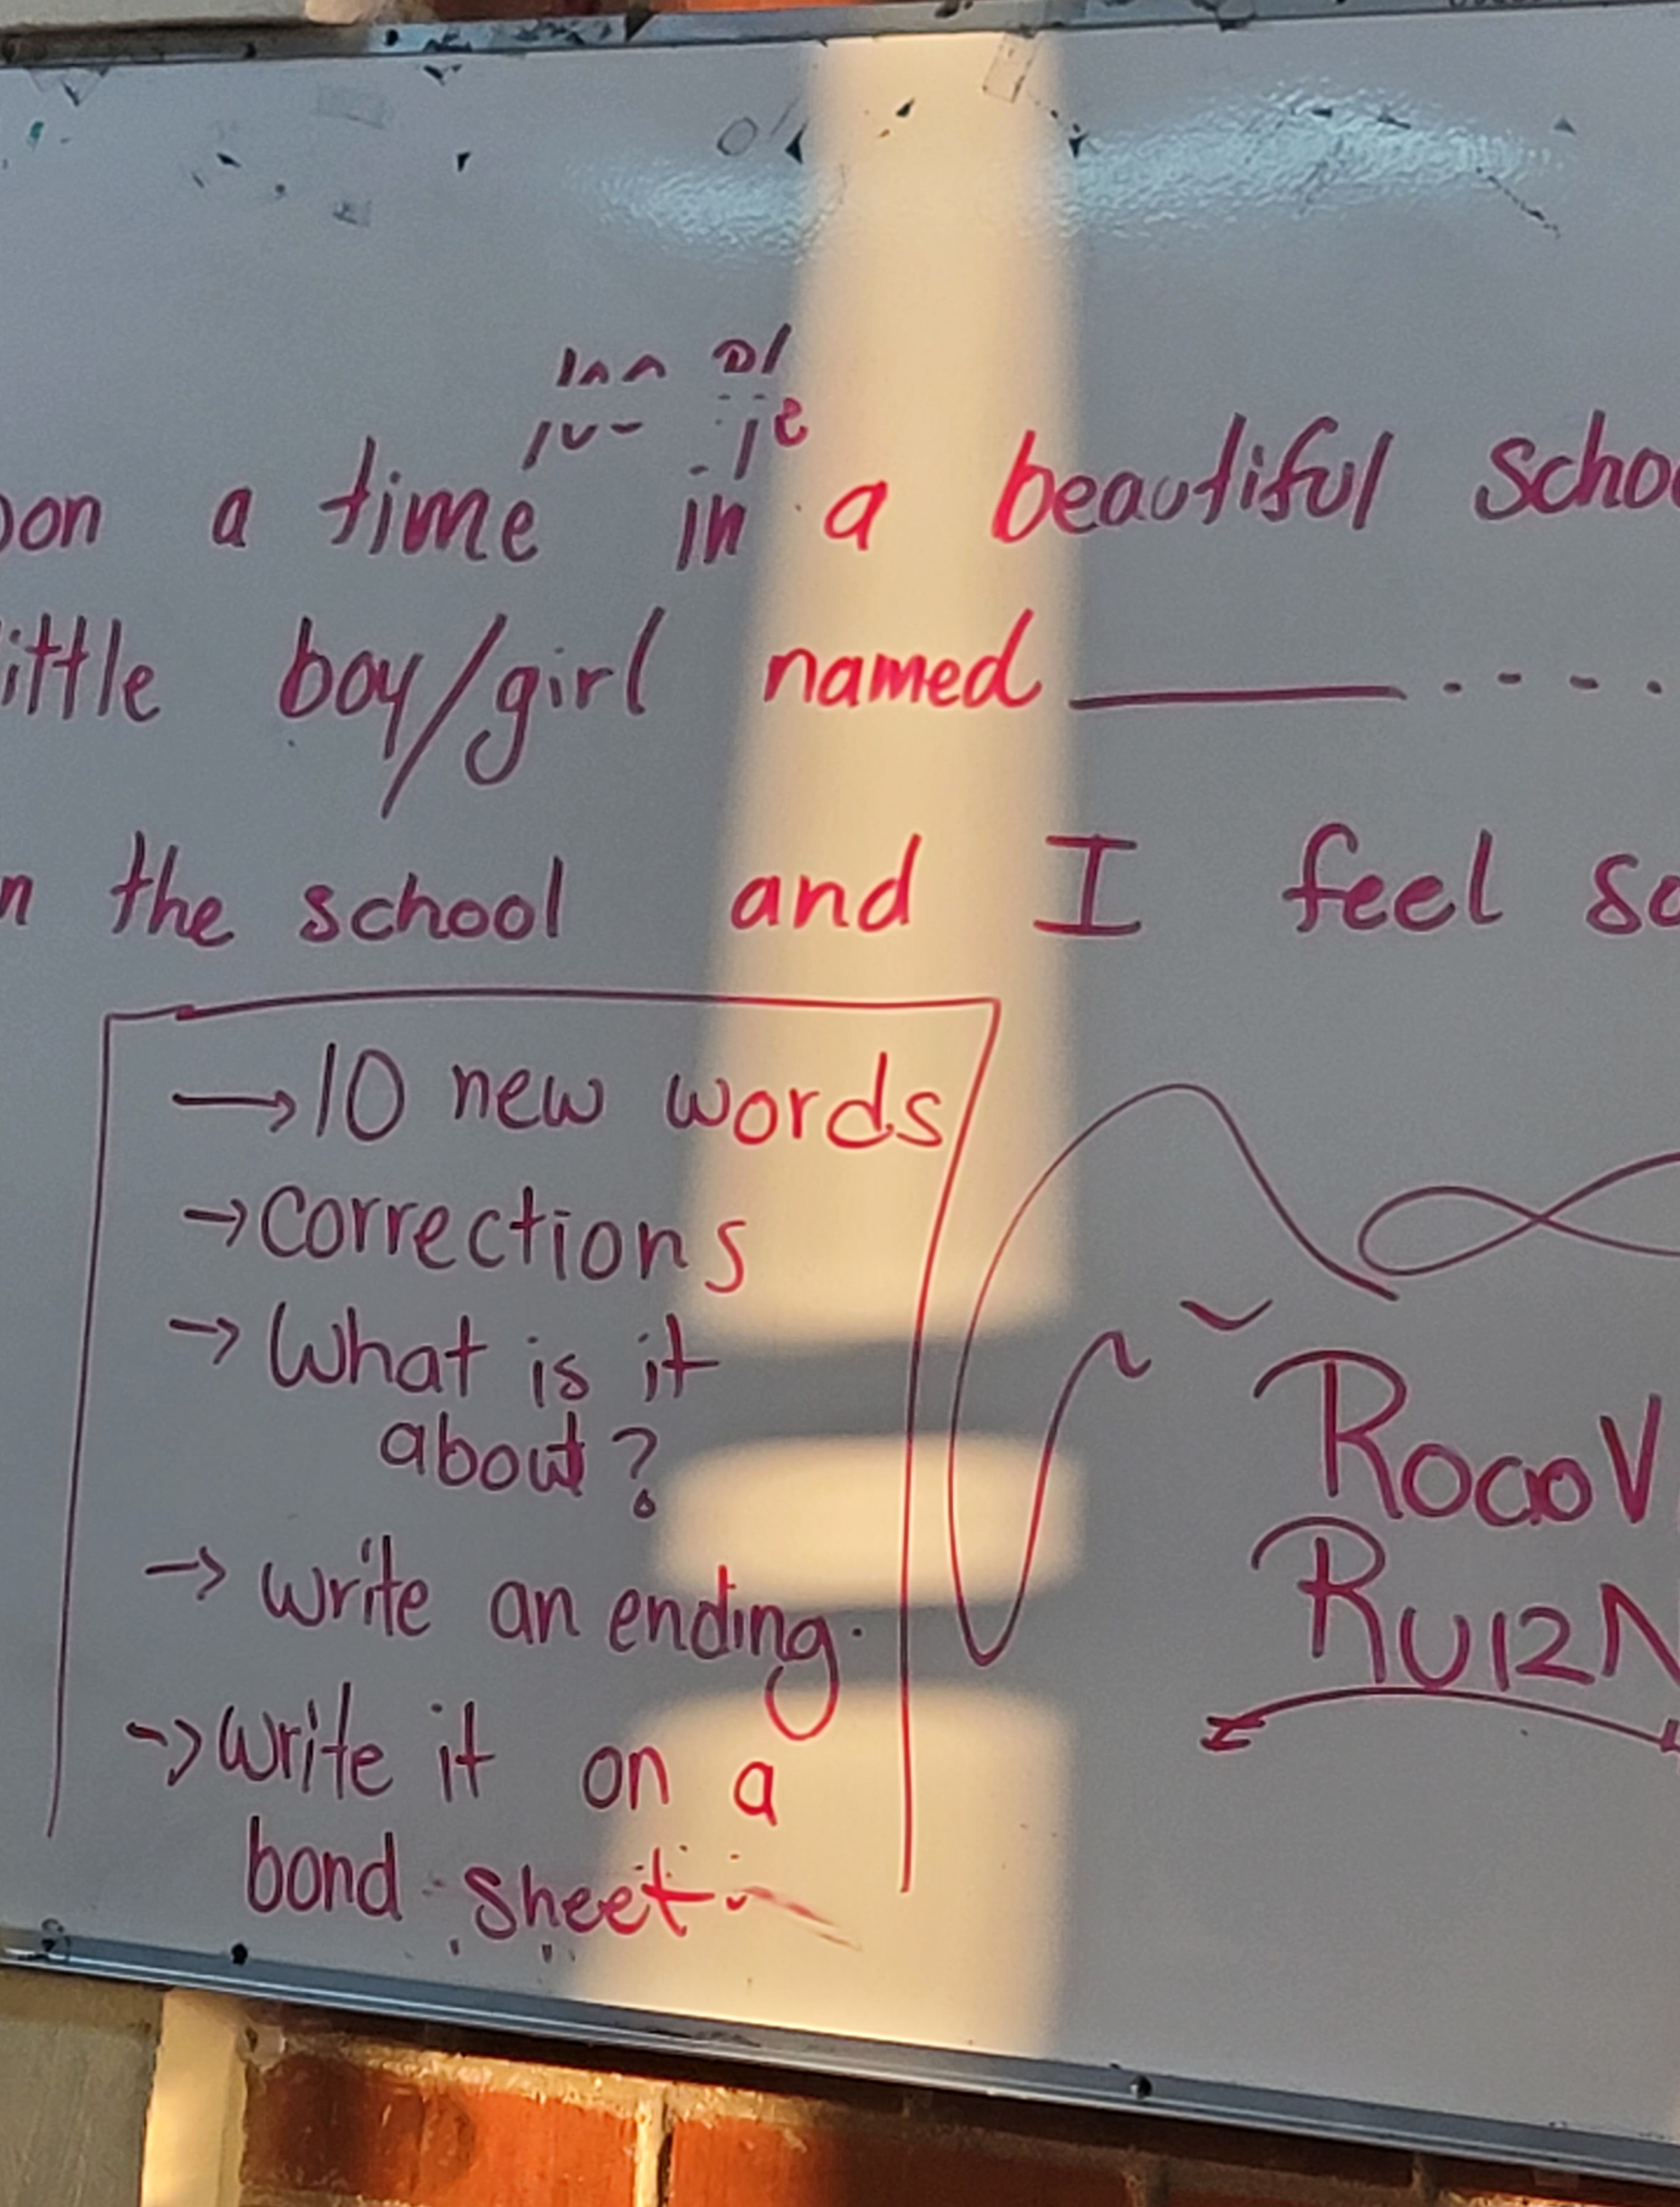 pon a time in a beautiful schoo
little boy/girl named ______ ....
n the school and I feel so
→ 10 new words
→ Corrections
→ What is it
about?
→ write an ending.
→ write it on a
bond sheet